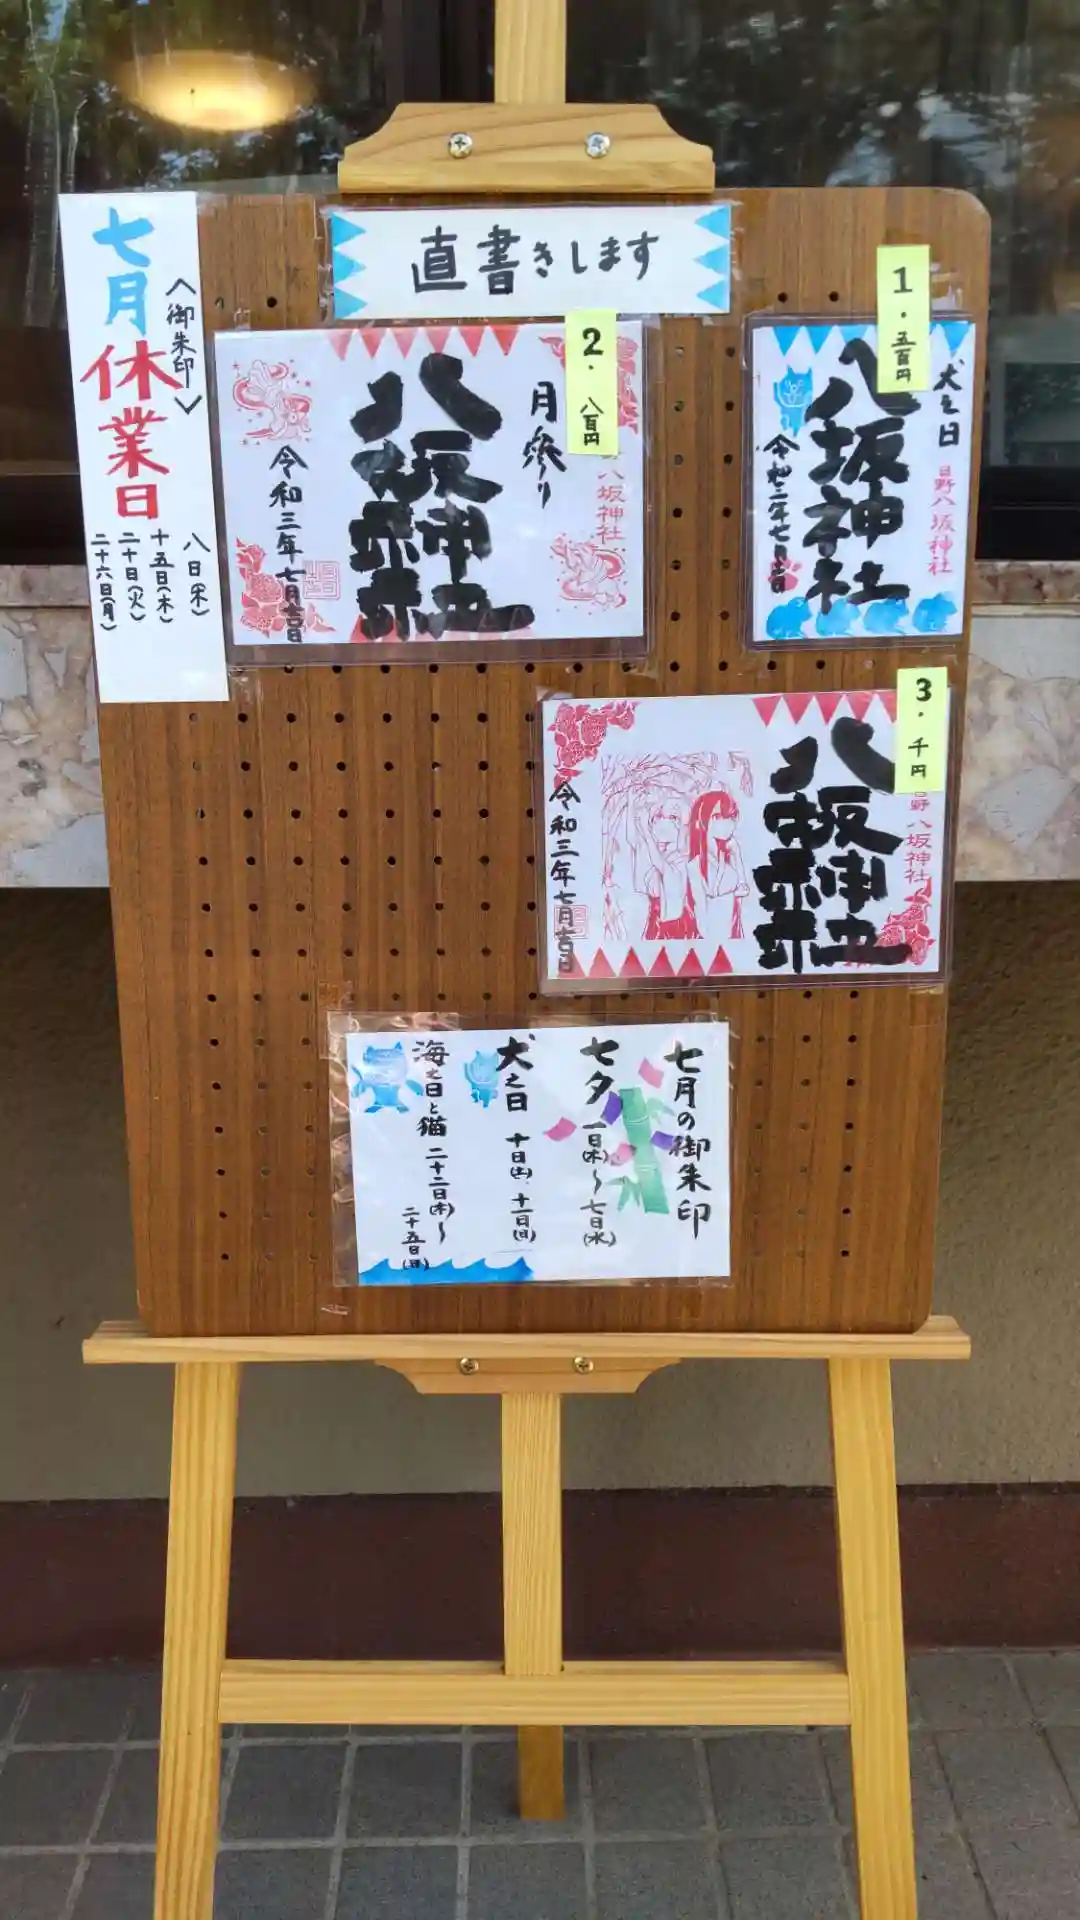 直書きします
七月休業日
〈御朱印〉
八日(木)
十五日(木)
二十日(火)
二十六日(月)
1.五百円
犬之日
日野八坂神社
八坂神社
令和三年七月吉日
2.八百円
月参り
八坂神社
八坂神社
令和三年七月吉日
3.千円
日野八坂神社
八坂神社
令和三年七月吉日
七月の御朱印
七夕の一日(木)〜七日(水)
犬之日 十日(土)、十一日(日)
海之日と猫 二十二日(木)〜
二十五日(日)